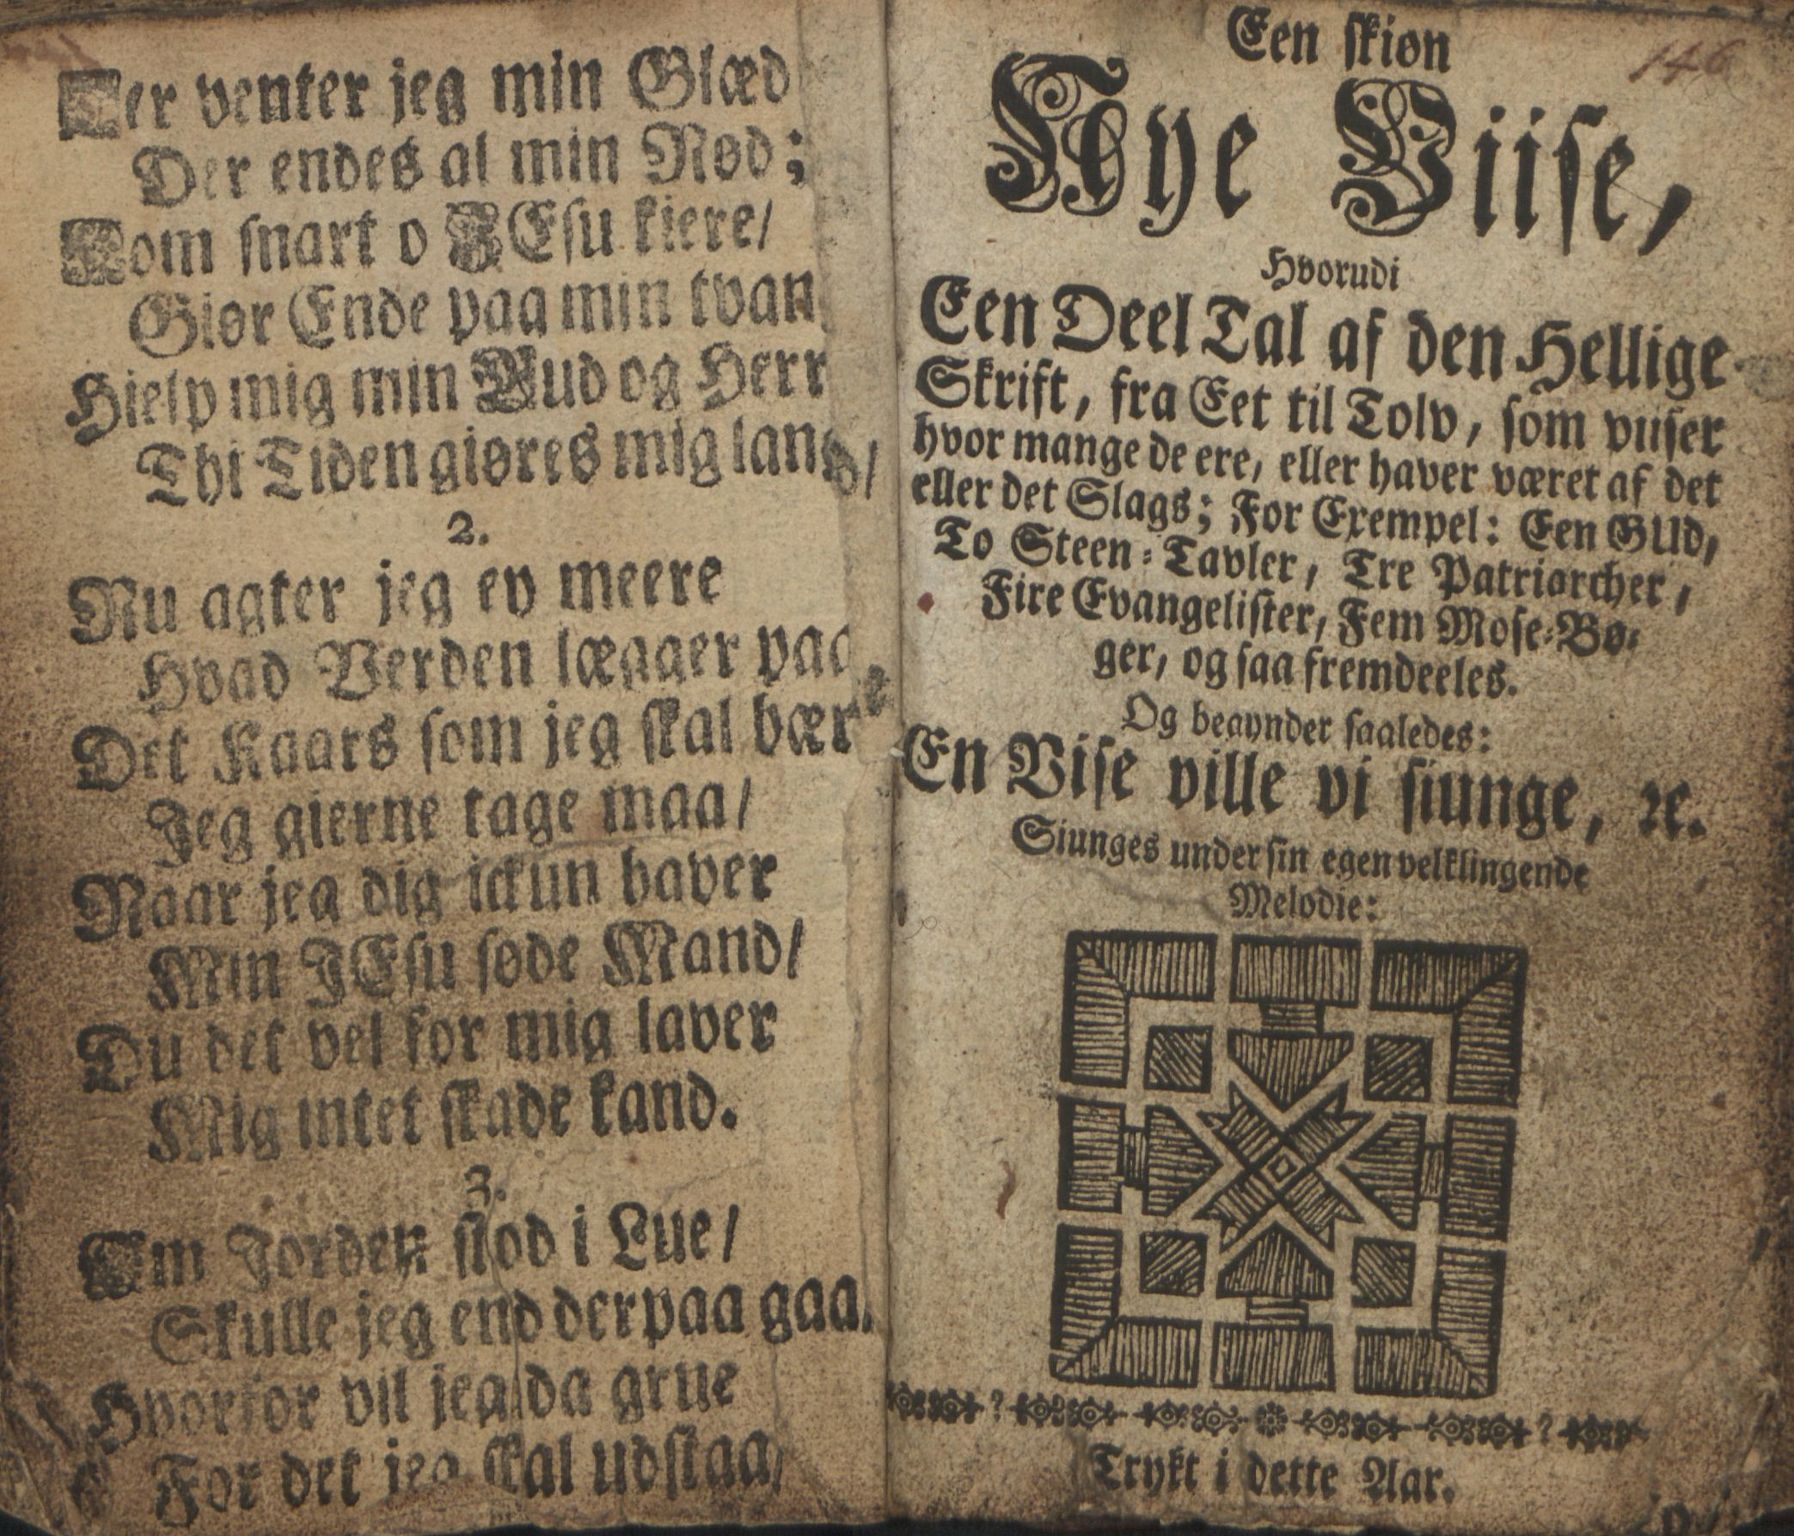 Der venter jeg min Glæd
Der endes al min Nød;
Kom snart o JEsu kiere/
Giør Ende paa min tvan
Hielp mig min Gud og Herr
Thi Tiden giøres mig lang/
2.
Nu agter jeg ey meere
Hvad Verden lægger paa
Det Kaars som jeg skal bære
Jeg gierne tage maa/
Naar jeg dig ickun haver
Min JEsu søde Mand/
Du det vel for mig laver
Mig intet skade kand.
3.
Om Jorden stod i Lue/
Skulle jeg end derpaa gaa/
Hvorfor vil jeg da grue
For det jeg skal udstaa/
146
Een skiøn
Nye Viise,
Hvorudi
Een Deel Tal af den Hellige
Skrift, fra Eet til Tolv, som viiser
hvor mange de ere, eller haver været af det
eller det Slags; For Exempel: Een GUD,
To Steen-Tavler, Tre Patriarcher,
Fire Evangelister, Fem Mose-Bø-
ger, og saa fremdeeles.
Og begynder saaledes:
En Vise ville vi siunge, ꝛc.
Siunges under sin egen velklingende
Melodie:
Trykt i dette Aar.